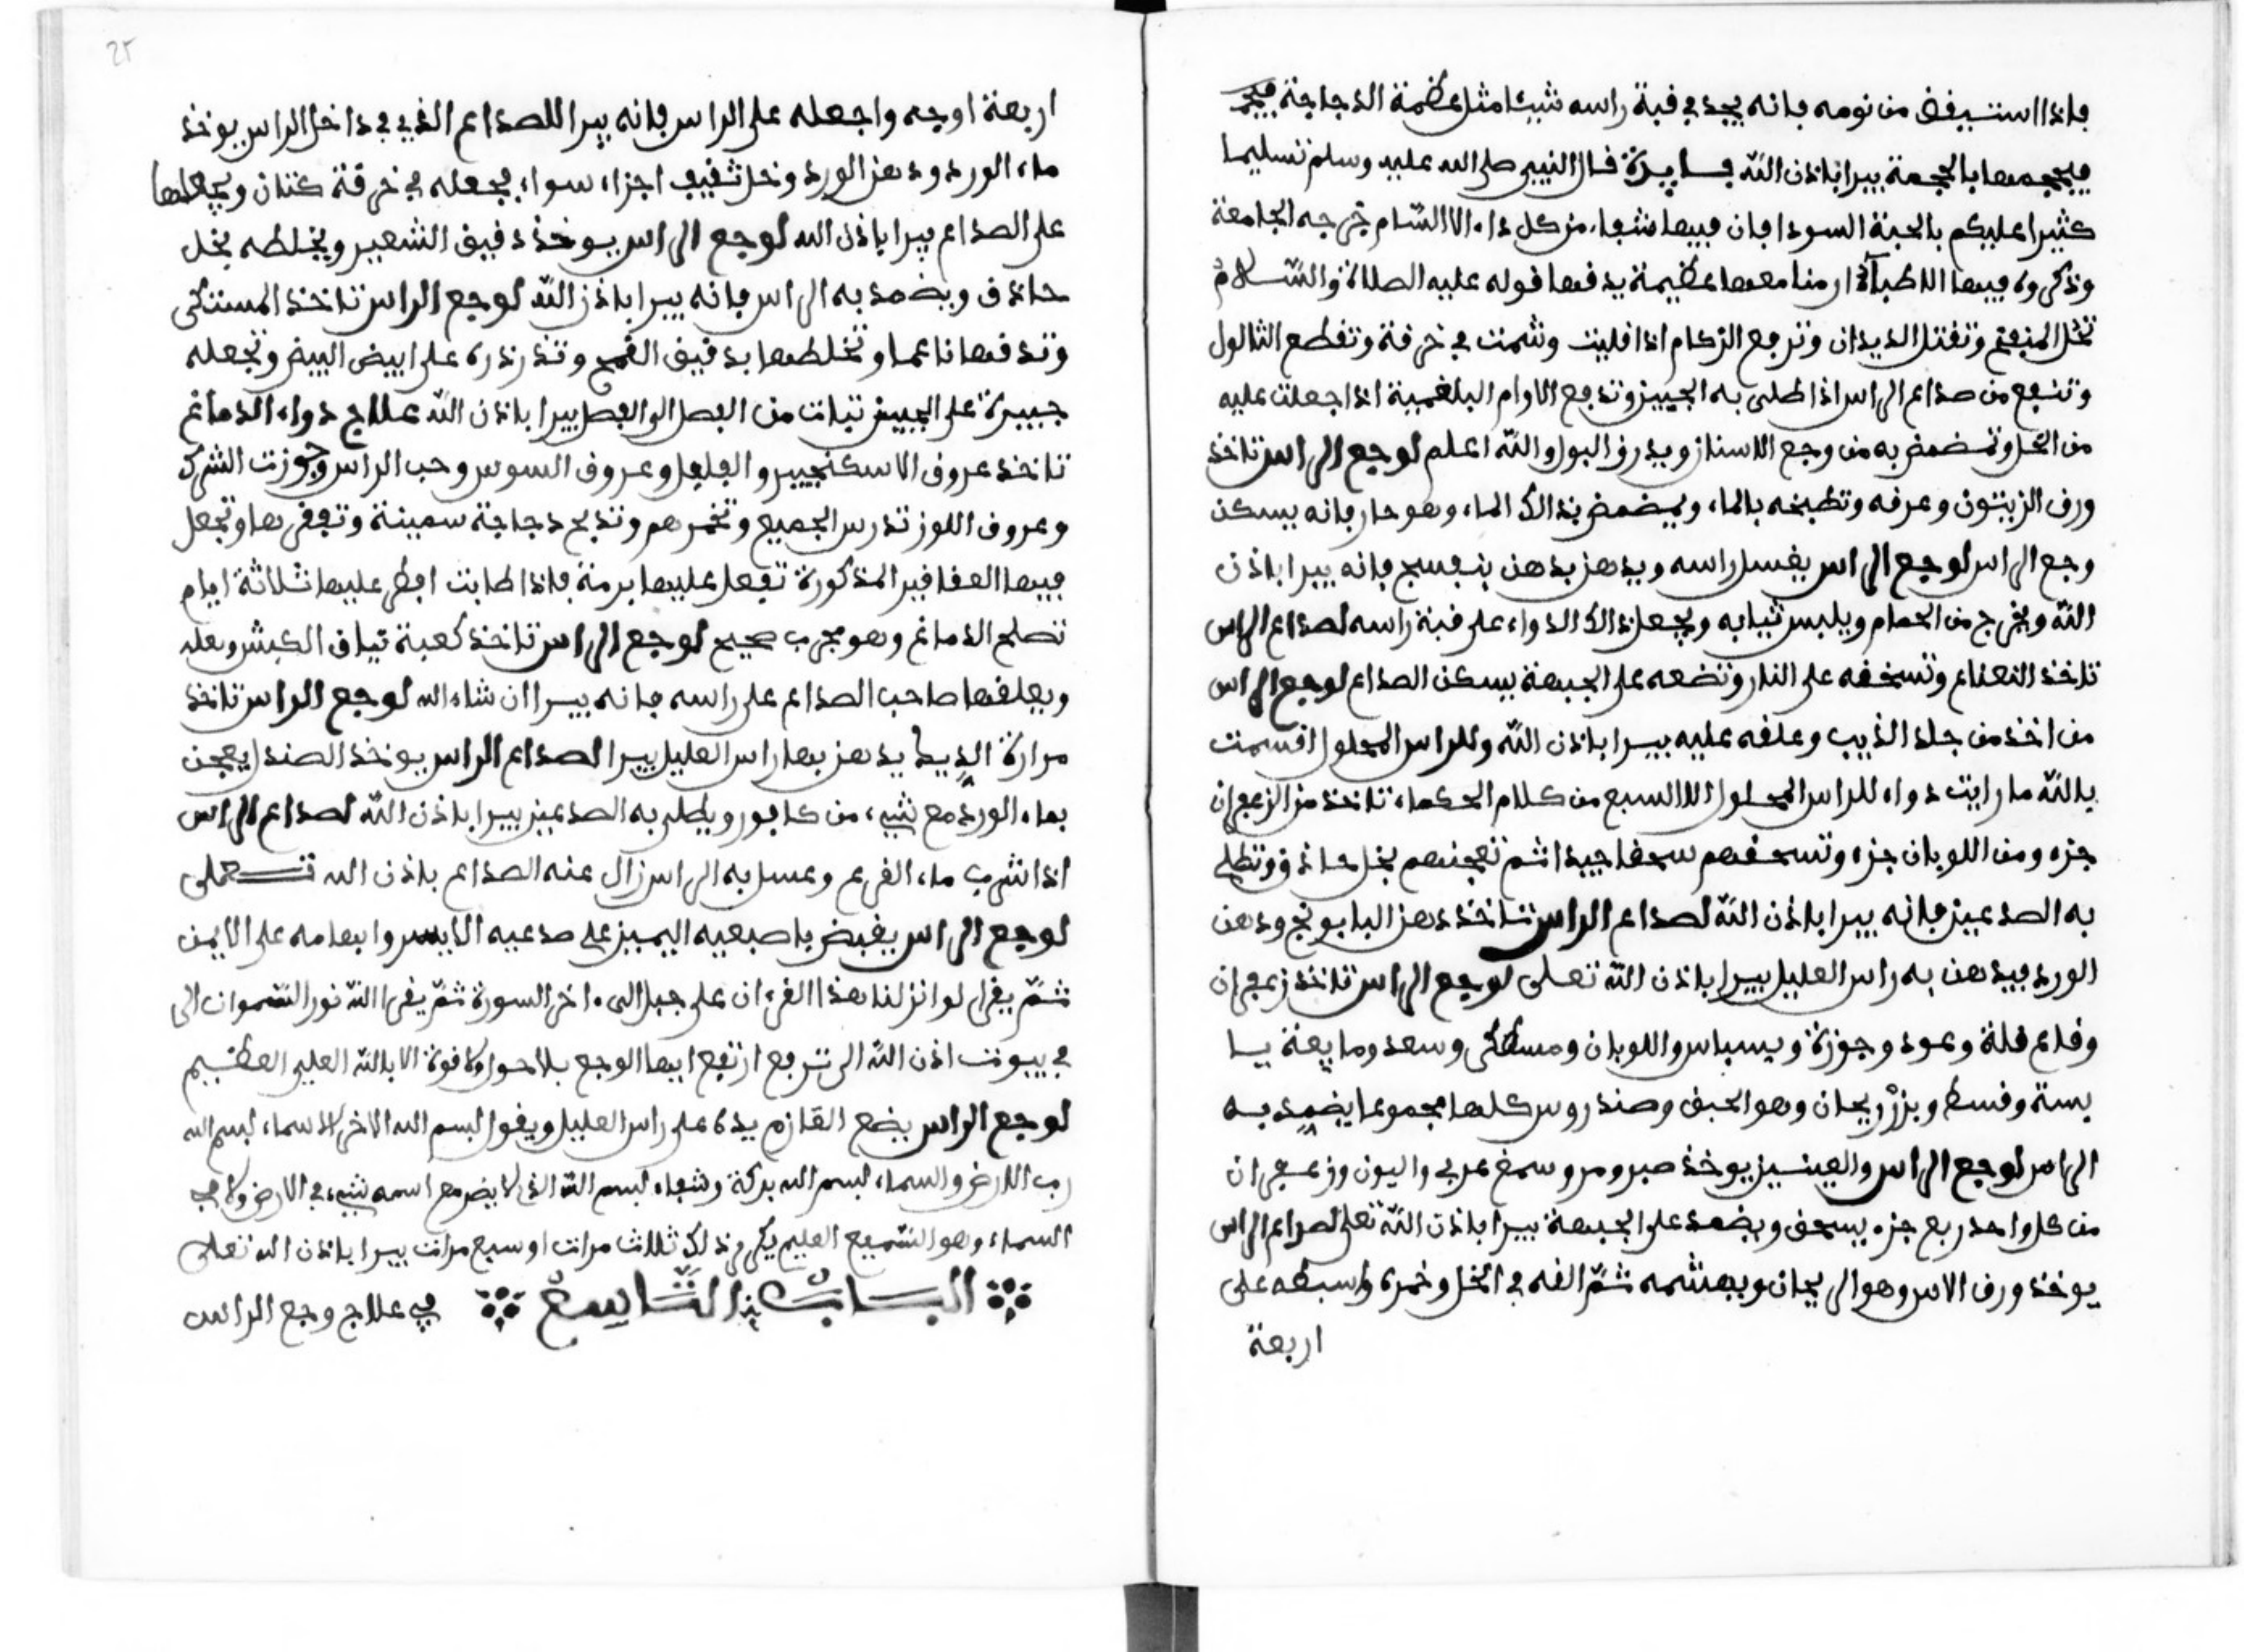 فإذا استيقض من نومه فإنه يجد في قبة راسه شيئا مثل عظمة الدجاجة
فيحجمها بالحجمة يبرا باذن الله فايدة قال النبيي صلى الله عليه وسلم تسليما
كثيرا عليكم بالحبة السودا فان فيها شفاء من كل داء الا السام خرجه الجامعة
وذكروه فيها الاطباء منامعها عظيمة يدفها قوله عليه الصلاة والسلام
تحل المنعقم وتقتل الديدان وترجع الزكام اذا قليت وشمت في خرقة وتقطع الثالول
وتنفع من صداع الراس اذا طلي به الجبين وتدفع الاوام البلغمية اذا جعلت عليه
من الخل وتمضمض به من وجع الاسنان ويدر البول والله اعلم لوجع الراس تاخذ
ورق الزيتون وعرقه وتطبخه بالماء ويمضمض بذالك الماء وهو حار فإنه يسكن
وجع الراس لوجع الراس يغسل راسه ويدهن بدهن بنفسج فإنه يبرا باذن
الله ويخرج من الحمام ويلبس ثيابه ويجعل ذالك الدواء على قبة راسه لصداع الراس
تاخذ النعناع وتسخفه على النار وتضعه على الجبهة يسكن الصداع لوجع الراس
من اخذ من جلد الذيب وعلقه عليه يبرا باذن الله وللراس المحلول اقسمت
بالله ما رايت دواء للراس المحلول الا السبع من كلام الحكماء تاخذ من الزعفران
جزء ومن اللوبان جزء وتسحقهم سحقا جيدا ثم تعجنهم بخل حاذق وتطلي
به الصدعين فإنه يبرا باذن الله لصداع الراس تاخذ دهن البابونج ودهن
الورد فيدهن به راس العليل يبرا باذن الله تعلى لوجع الراس تاخذ زعفران
وقاع قلة وعود وجوزة وبسباس واللوبان ومسطكى وسعد ومايعة يا
بسة وقسط وبزر ريحان وهو الحبق وصندروس كلها مجموعا يضمد به
الراس لوجع الراس والعينين يوخذ صبر ومر وسمغ عربي واليون وزعفران
من كل واحد ربع جزء يسحق ويضمد على الجبهة يبرا باذن الله تعلى لصداع الراس
يوخذ ورق الاس وهو الريحان ويهشمه ثم الفه في الخل وخمره وابسطه على
اربعة
25
اربعة اوجه واجعله على الراس فإنه يبرا للصداع الذي في داخل الراس يوخذ
ماء الورد ودهن الورد وخل ثقيف اجزاء سواء فيجعله في خرقة كتان ويجعلها
على الصداع يبرا باذن الله لوجع الراس يوخذ دقيق الشعير ويخلطه بخل
حاذق ويضمد به الراس فإنه يبرا باذن الله لوجع الراس تاخذ المستكى
وتدقها ناعما وتخلطها بدقيق القمح وتذرذره على ابيض البيض وتجعله
جبيرة على الجبين تبات من الفصل الى الفصل يبرا باذن الله علاج دواء الدماغ
تاخذ عروق الاسكنجبير والفلفل وعروق السوس وحب الراس وجوزت الشرك
وعروق اللوز تدرس الجميع وتخمرهم وتذبح دجاجة سمينة وتبقرها وتجعل
فيها العقاقير المذكورة تفعل عليها برمة فإذا طابت افطر عليها ثلاثة ايام
تصلح الدماغ وهو مجرب صحيح لوجع الراس تاخذ كعبة تياق الكبش وبعله
ويعلقها صاحب الصداع على راسه فإنه يبرا ان شاء الله لوجع الراس تاخذ
مرارة الديك يدهن بها راس العليل يبرا لصداع الراس يوخذ الصندل يعجن
بماء الورد مع شيء من كافور ويطلى به الصدعين يبرا باذن الله لصداع الراس
اذا شرب ماء القرع وغسل به الراس زال عنه الصداع باذن الله تعلى
لوجع الراس يقبض باصبعيه اليمين على صدعيه الايسر وابهامه على الايمن
ثم يقرا لو انزلنا هذا القرءان على جبل الى ءاخر السورة ثم يقرا الله نور السموات الى
في بيوت اذن الله ان ترفع ارتفع ايها الوجع بلا حول ولا قوة الا بالله العلي العظيم
لوجع الراس يضع القازم يده على راس العليل ويقول بسم الله الاخر الاسماء بسم الله
رب الارض والسماء بسم الله بركة وشفاء بسم الله الذي لا يضر مع اسمه شيء في الارض ولا في
السماء وهو السميع العليم يكرر ذلك ثلاث مرات او سبع مرات يبرا باذن الله تعلى
الباب التاسع في علاج وجع الراس